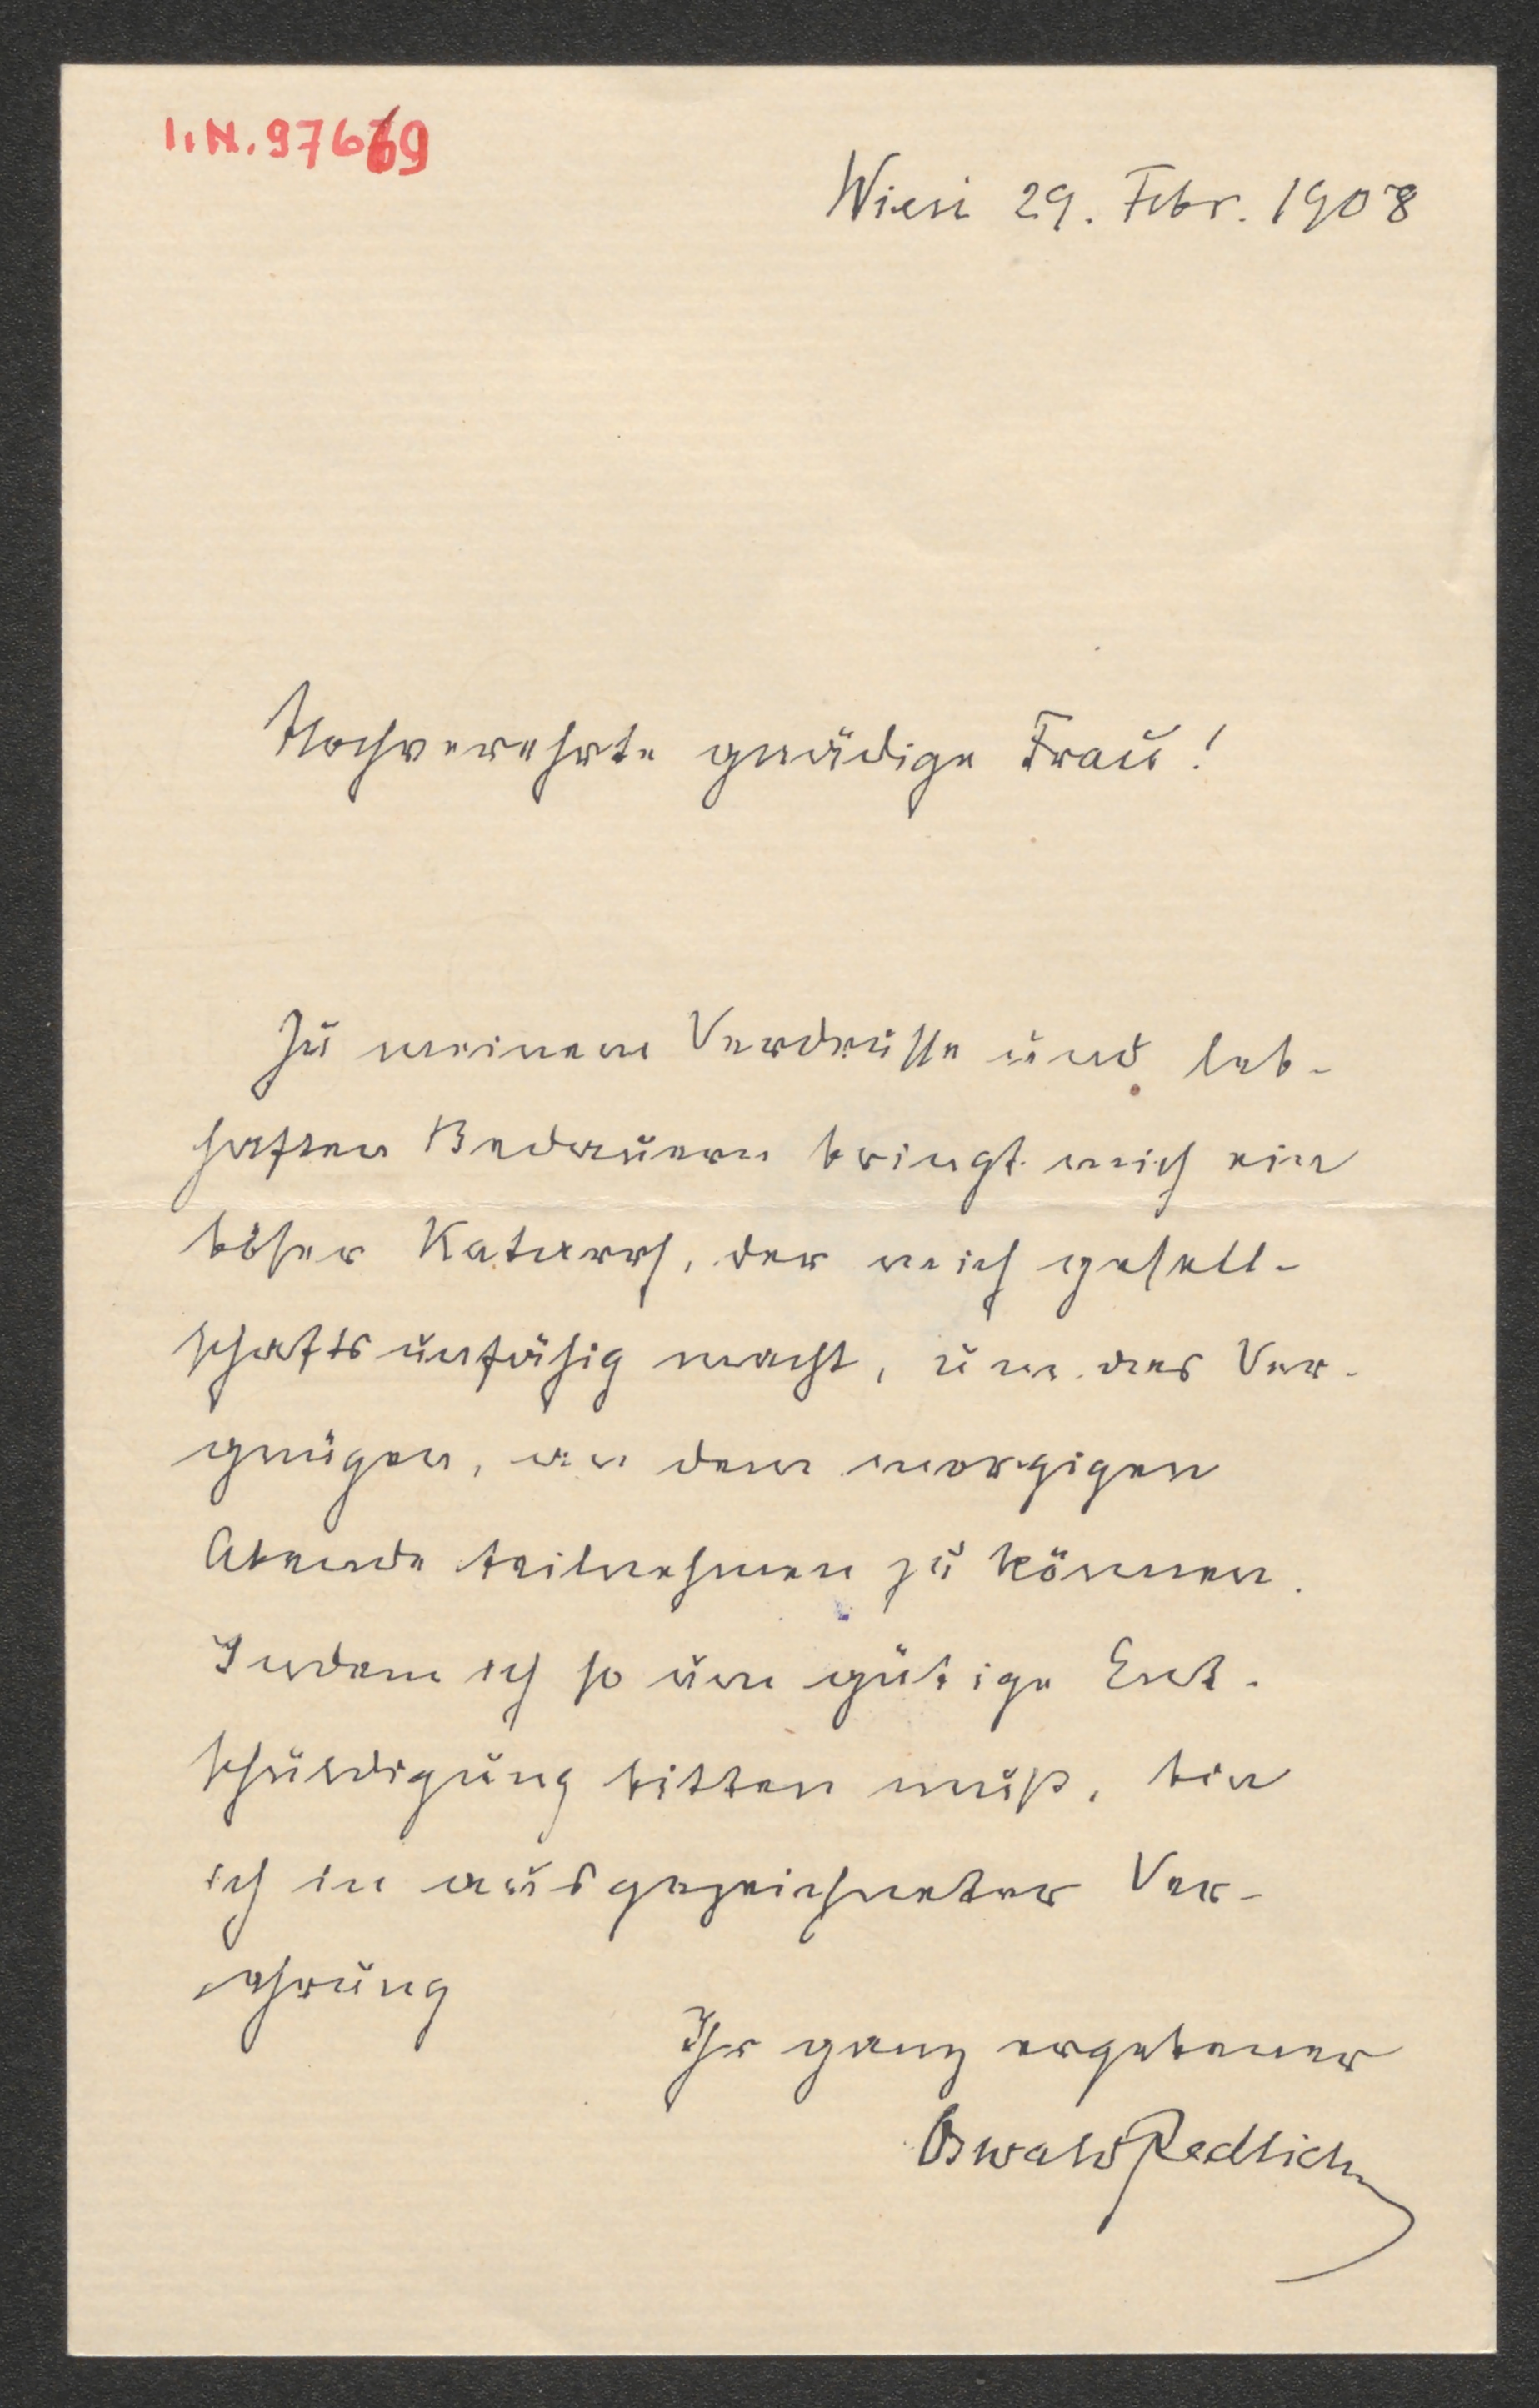 I.N. 97669
Wien 29. Febr. 1908
Hochverehrte gnädige Frau!
Zu meinem Verdrusse und leb-
haften Bedauern bringt mich ein
böser Katarrh, der mich gesell-
schaftsunfähig macht, um das Ver-
gnügen, an dem morgigen
Abende teilnehmen zu können.
Indem ich so um gütige Ent-
schuldigung bitten muß, bin
ich in ausgezeichneter Ver-
ehrung
Ihr ganz ergebener
Oswald Redlich